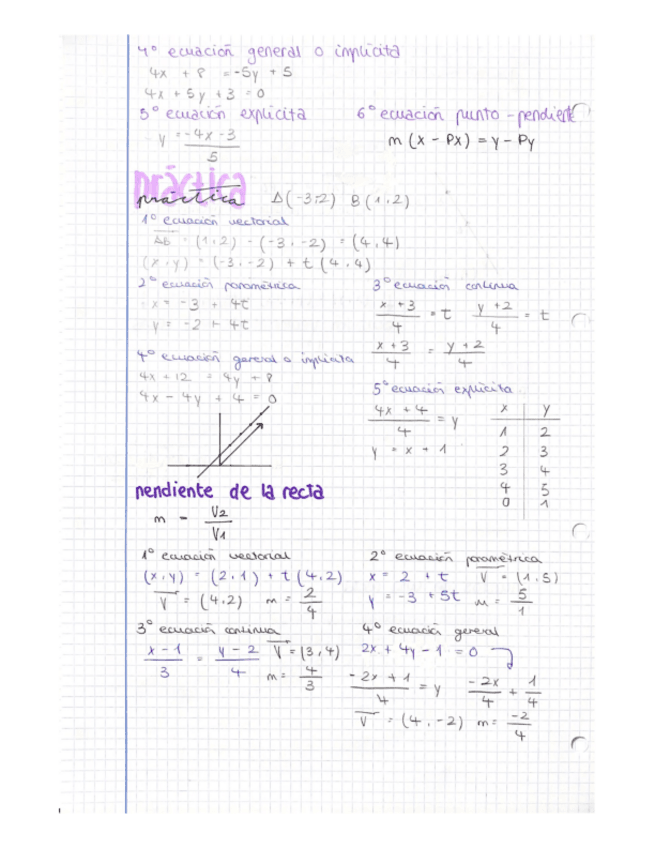 4º ecuación general o implícita
4x + 8 = -5y + 5
4x + 5y + 3 = 0
5º ecuación explícita
y = -4x -3 / 5
6º ecuación punto - pendiente
m (x - Px) = y - Py
práctica
práctica A(-3,-2) B(1,2)
1º ecuación vectorial
AB = (1,2) - (-3,-2) = (4,4)
(x,y) = (-3,-2) + t (4,4)
2º ecuación paramétrica
x = -3 + 4t
y = -2 + 4t
3º ecuación continua
x +3 / 4 = t y +2 / 4 = t
x +3 / 4 = y +2 / 4
4º ecuación general o implícita
4x + 12 = 4y + 8
4x - 4y + 4 = 0
5º ecuación explícita
4x + 4 / 4 = y
y = x + 1
x y
1 2
2 3
3 4
4 5
0 1
pendiente de la recta
m = V2 / V1
1º ecuación vectorial
(x,y) = (2,1) + t (4,2)
V = (4,2) m = 2 / 4
2º ecuación paramétrica
x = 2 + t V = (1,5)
y = -3 + 5t m = 5 / 1
3º ecuación continua
x - 1 / 3 = y - 2 / 4 V = (3,4)
m = 4 / 3
4º ecuación general
2x + 4y - 1 = 0
-2x + 1 / 4 = y -2x / 4 + 1 / 4
V = (4,-2) m = -2 / 4